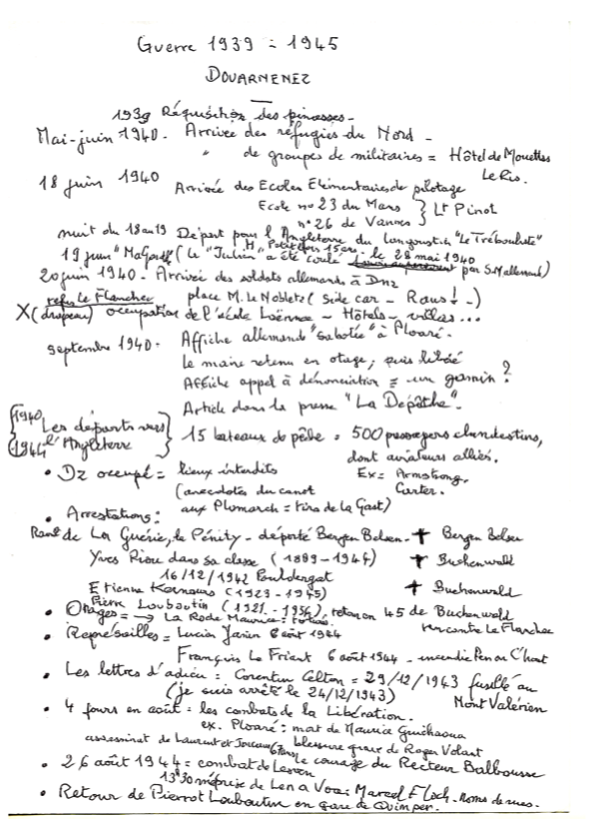 Guerre 1939 = 1945
DOUARNENEZ
1939 Réquisition des pinasses -
Mai-juin 1940 - Arrivée des réfugiés du Nord -
" de groupes de militaires = Hôtel de Mouettes
Le Ris.
18 juin 1940 Arrivée des Ecoles Elémentaires de pilotage
Ecole n° 23 du Mans } Lt Pinot
n° 26 de Vannes
nuit du 18 au 19 Départ pour l'Angleterre du langoustier "Le Trébouliste"
M. Potitjean 15 ans.
19 juin "Ma Gondole" (Le "Julien" a été coulé le 28 mai 1940 par S/M allemand)
20 juin 1940 - Arrivée des soldats allemands à Dnz
refus Le Flancher place M. Le Nobletz (Side car - Raus ! -)
X (drapeau) occupation de l'école Laënnec - Hôtels - villas...
septembre 1940 - Affiche allemande "sabotée" à Ploaré.
Le maire retenu en otage, puis libéré
Affiche appel à dénonciation = un gamin ?
Article dans la presse "La Dépêche".
{1940 1944 Les départs vers l'Angleterre} 15 bateaux de pêche = 500 passagers clandestins,
dont aviateurs alliés.
• Dz occupé = lieux interdits Ex = Armstrong,
(anecdotes du canot Carter.
aux Plomarch = tirs de la Gast)
• Arrestations :
de La Guérie, le Pénity - déporté Bergen Belsen - † Bergen Belsen
Yves Riou dans sa classe (1889-1944) † Buchenwald
16/12/1942 Pouldergat
Etienne Kernours (1923-1945) † Buchenwald
Pierre Louboutin (1921-1956), retour en 45 de Buchenwald
rencontre Le Flancher
• Otages = → La Rade Maurice :
• Représailles = Lucien Jarier 6 août 1944
François Le Friant 6 août 1944 - incendie Pen ar C'hoat
• Les lettres d'adieu = Corentin Celton = 29/12/1943 fusillé au
(je suis arrêté le 24/12/1943) Mont Valérien
• 4 jours en août = les combats de la Libération.
ex. Ploaré : mort de Maurice Guikaoua
blessure grave de Roger Volant
assassinat de Laurent et le courage du Recteur Balbousse
• 26 août 1944 = combat de Lesven
13h30 méprise de Len a Vori Marcel F Loch - Noms de rues.
• Retour de Pierrot Louboutin en gare de Quimper.